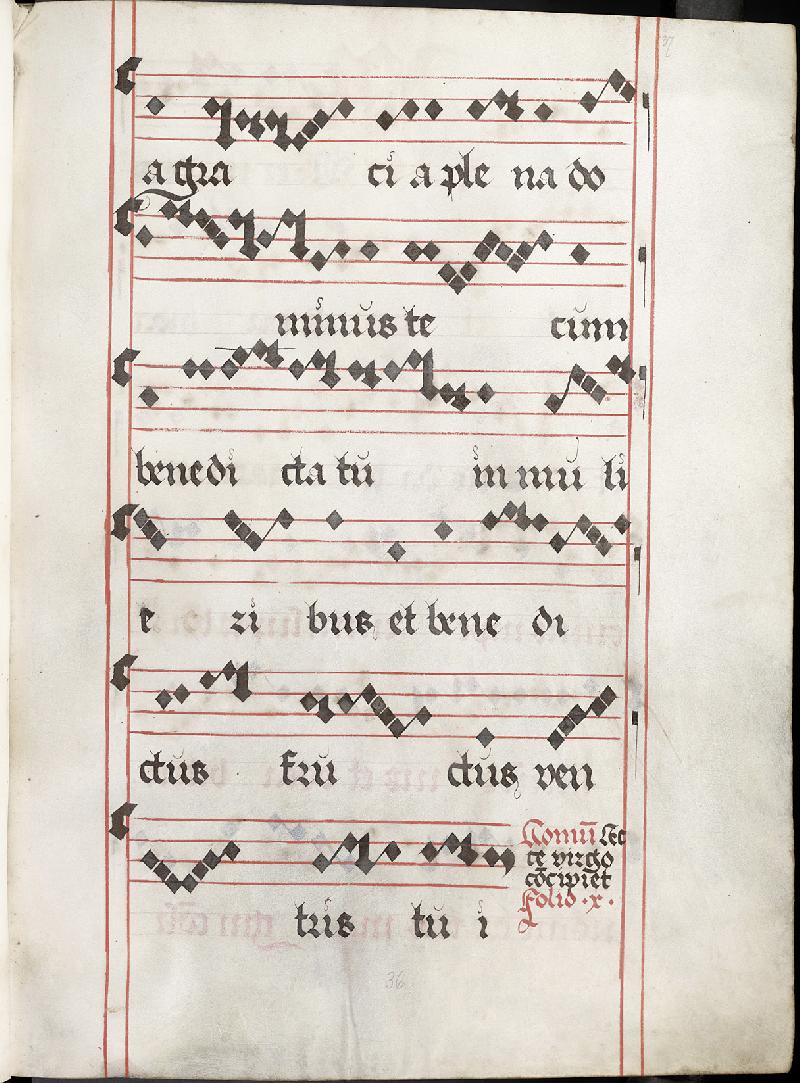 37
a gra ci a ple na do
minus te cum
benedi cta tu in mu li
e ri bus et bene di
ctus fru ctus ven
tris tu i
Comuī Ecc
ce virgo
cōcipiet
folio .x.
36